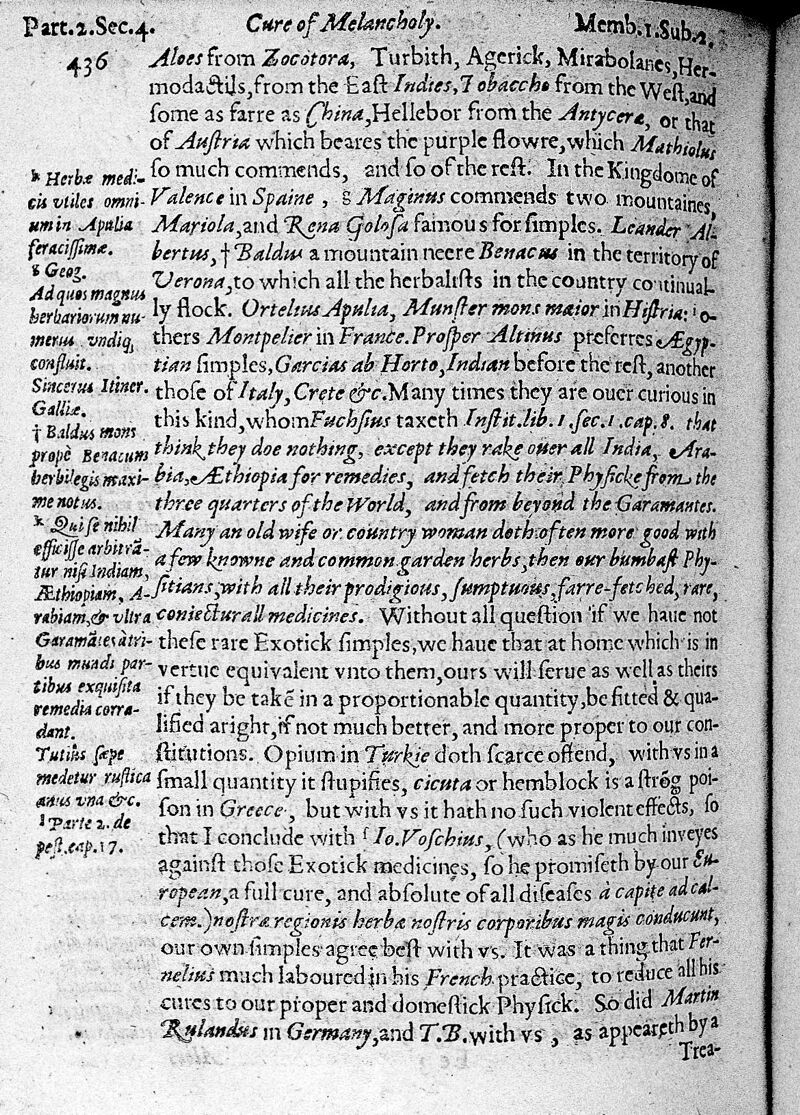 Part.2.Sec.4. Cure of Melancholy. Memb.1.Sub.2.
436
Aloes from Zocotora, Turbith, Agerick, Mirabolanes, Her-
modactils, from the East Indies, Tobaccho from the West, and
some as farre as China, Hellebor from the Antycera, or that
of Auſtria which beares the purple flowre, which Mathiolus
ſo much commends, and ſo of the reſt. In the Kingdome of
Valence in Spaine, g Maginus commends two mountaines,
Mariola, and Rena Goloſa famous for ſimples. Leander Al-
bertus, † Baldus a mountain neere Benacus in the territory of
Verona, to which all the herbaliſts in the country continual-
ly flock. Ortelius Apulia, Munſter mons maior in Hiſtria: o-
thers Montpelier in France. Proſper Altinus preferres Ægyp-
tian ſimples, Garcias ab Horto, Indian before the reſt, another
thoſe of Italy, Crete &c. Many times they are ouer curious in
this kind, whom Fuchſius taxeth Inſtit. lib. 1. ſec. 1. cap. 8. that
think they doe nothing, except they rake ouer all India, Ara-
bia, Æthiopia for remedies, and fetch their Phyſicke from the
three quarters of the World, and from beyond the Garamantes.
Many an old wife or country woman doth often more good with
a few knowne and common garden herbs, then our bumbaſt Phy-
ſitians, with all their prodigious, ſumptuous, farre-fetched, rare,
coniecturall medicines. Without all queſtion if we haue not
theſe rare Exotick ſimples, we haue that at home which is in
vertue equivalent vnto them, ours will ſerue as well as theirs
if they be takẽ in a proportionable quantity, be fitted & qua-
lified aright, if not much better, and more proper to our con-
ſtitutions. Opium in Turkie doth ſcarce offend, with vs in a
ſmall quantity it ſtupifies, cicuta or hemblock is a ſtrõg poi-
ſon in Greece, but with vs it hath no ſuch violent effects, ſo
that I conclude with Io. Voſchius, (who as he much inveyes
againſt thoſe Exotick medicines, ſo he promiſeth by our Eu-
ropean, a full cure, and abſolute of all diſeaſes à capite ad cal-
cem.) noſtræ regionis herbæ noſtris corporibus magis conducunt,
our own ſimples agree beſt with vs. It was a thing that Fer-
nelius much laboured in his French practice, to reduce all his
cures to our proper and domeſtick Phyſick. So did Martin
Rulandus in Germany, and T.B. with vs, as appeareth by a
Trea-
Herbæ medi-
cis vtiles omni-
um in Apulia
feraciſſimæ.
g Geog.
Ad quos magnus
herbariorum nu-
merus vndiq;
confluit.
Sincerus Itiner.
Galliæ.
† Baldus mons
propè Benacum
herbilegis maxi-
me notus.
* Qui ſe nihil
effiſſe arbitrã-
tur niſi Indiam,
Æthiopiam, A-
rabiam, & vltra
Garamãtes à tri-
bus mundi par-
tibus exquiſita
remedia corra-
dunt.
Tutius ſæpe
medetur ruſtica
anus vna &c.
Parte 2. de
peſt. cap. 17.